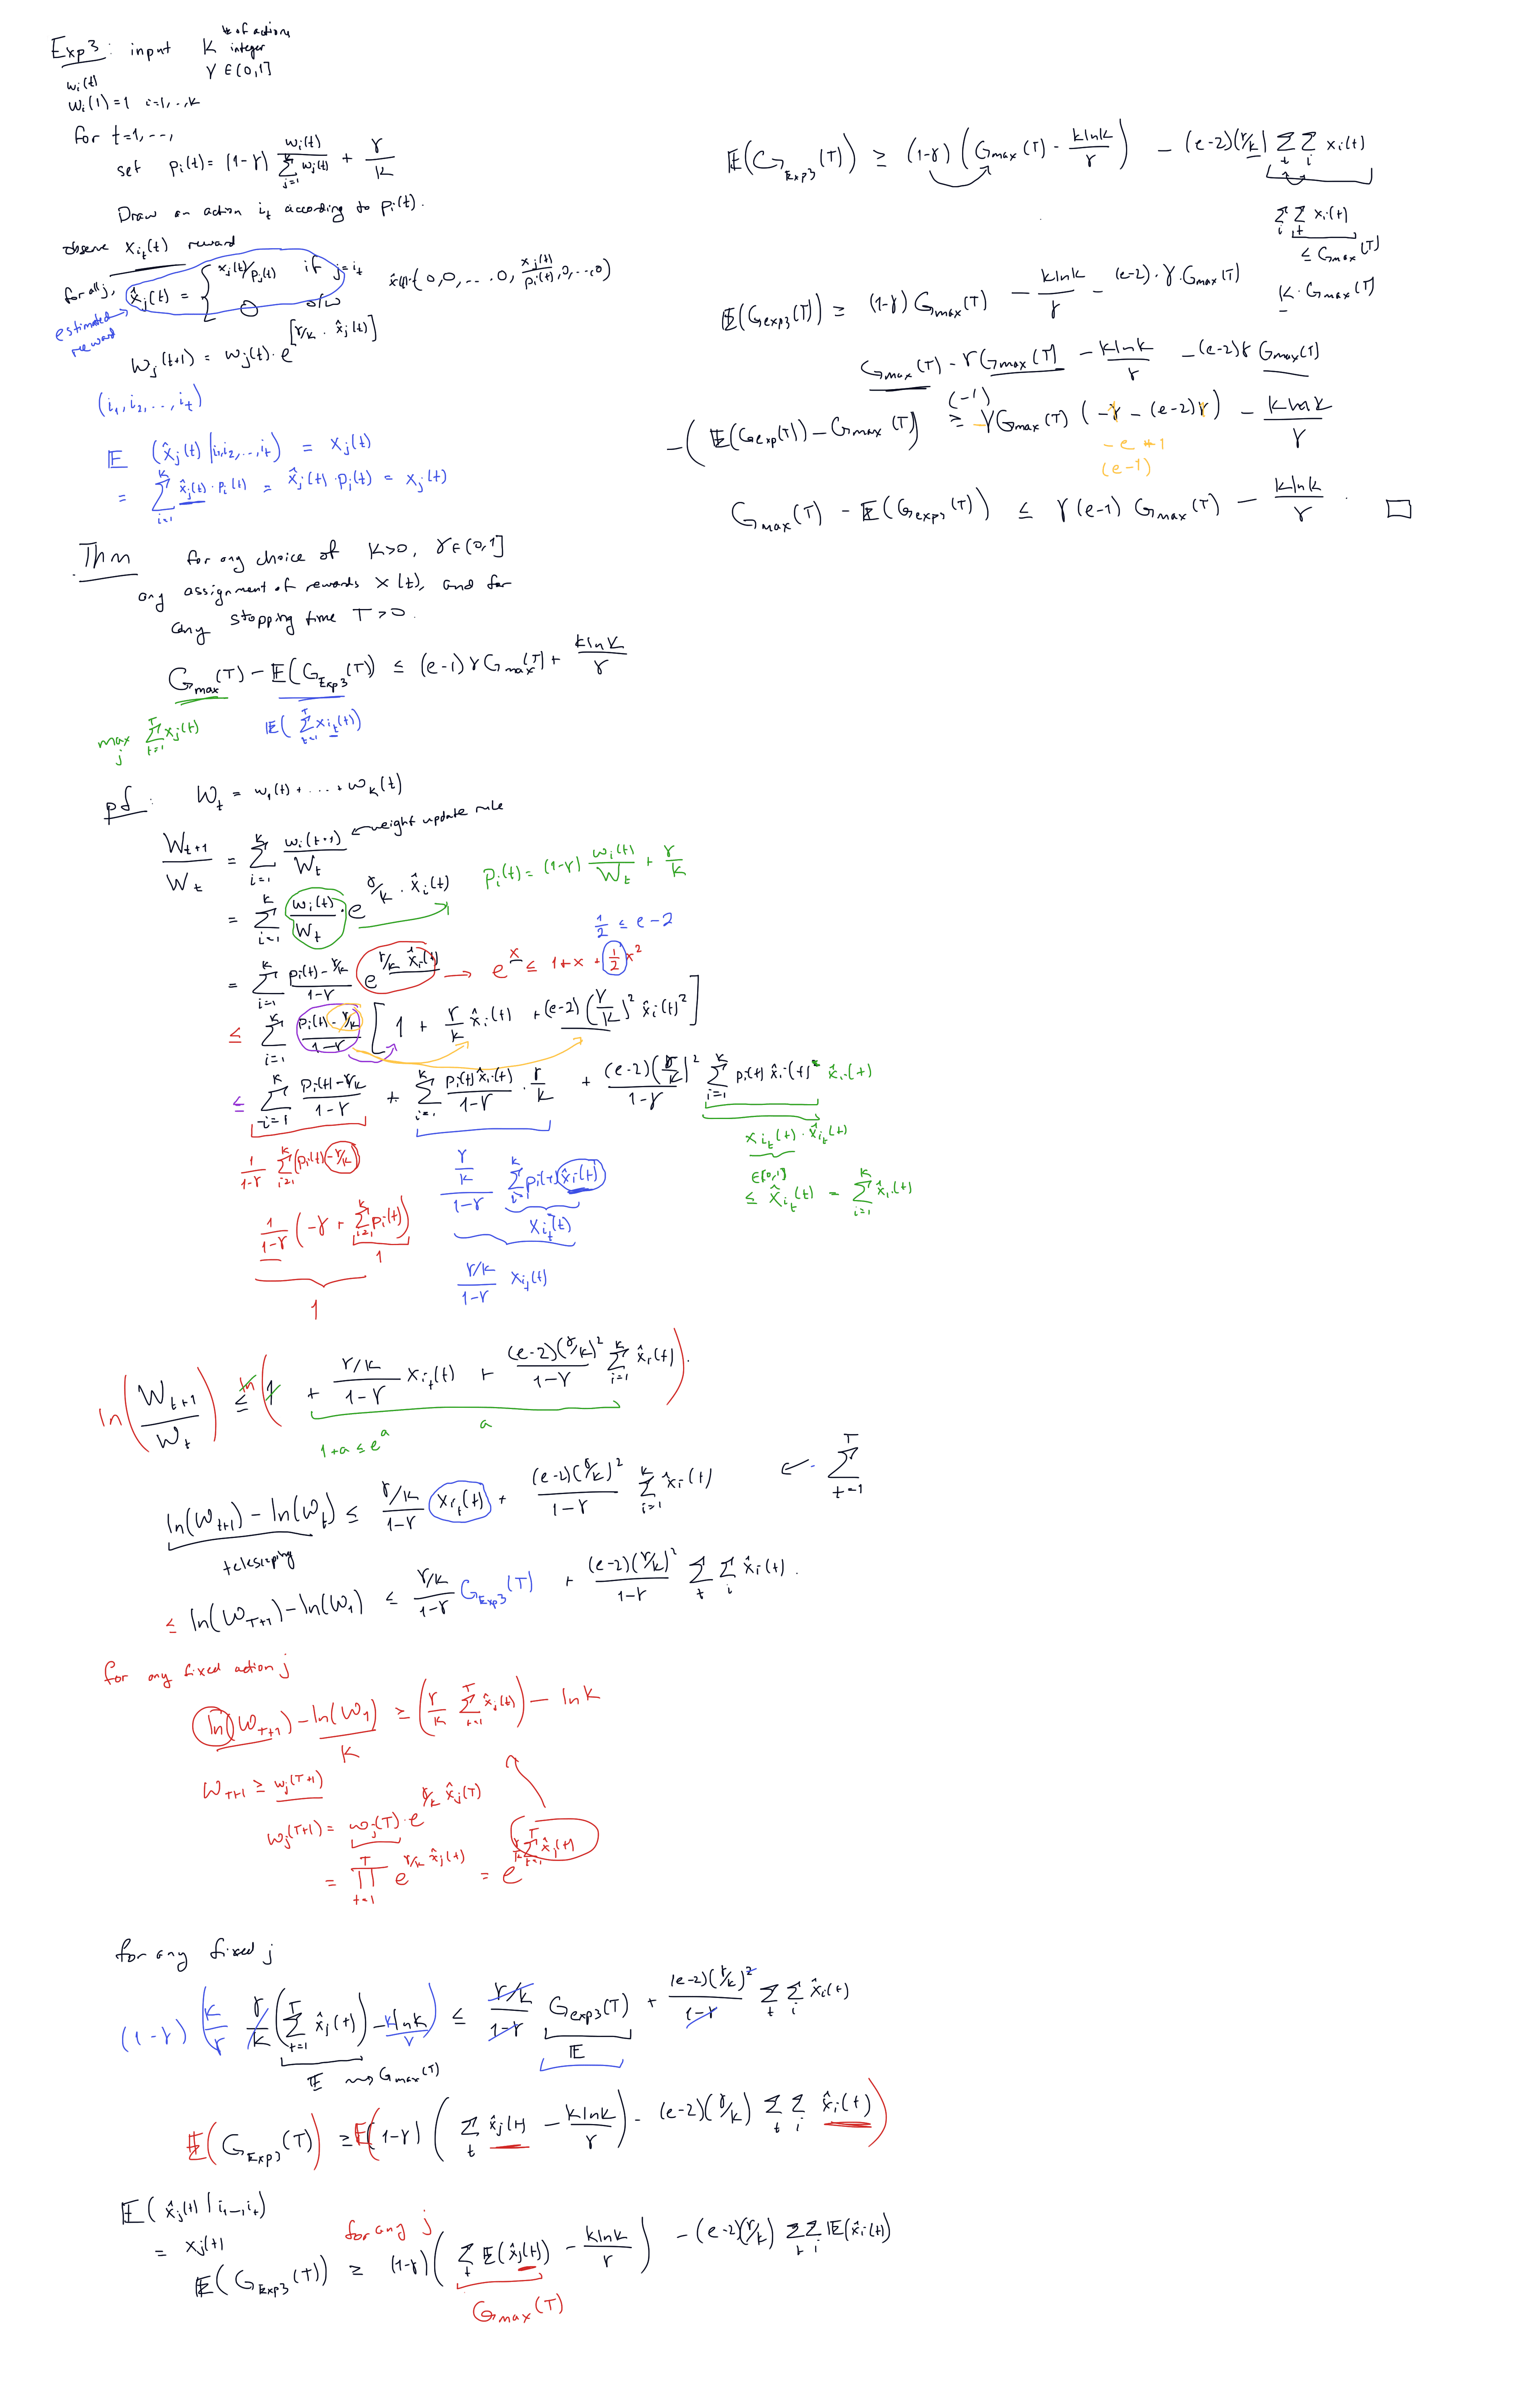 Exp3: input K # of actions integer
γ ∈ (0,1]
w_i(t)
w_i(1) = 1 i=1,..,K
for t=1,...,
set p_i(t) = (1-γ) w_i(t) / Σ_{j=1}^K w_j(t) + γ/K
Draw an action i_t according to p_i(t).
observe x_{i_t}(t) reward
for all j, x̂_j(t) = { x_j(t)/p_j(t) if j=i_t
0 o/w
x̂(t) = (0,0,...0, x_j(t)/p_i(t), 0,...,0)
estimated reward
w_j(t+1) = w_j(t) · e^[γ/K · x̂_j(t)]
(i_1, i_2, ..., i_t)
E (x̂_j(t) | i_1,i_2,...,i_t) = x_j(t)
= Σ_{i=1}^K x̂_j(t) · p_i(t) = x̂_j(t) · p_i(t) = x_j(t)
Thm for any choice of K>0, γ∈(0,1]
any assignment of rewards x(t), and for
any stopping time T>0.
G_max(T) - E(G_Exp3(T)) ≤ (e-1) γ G_max(T) + K ln K / γ
max_j Σ_{t=1}^T x_j(t)
E( Σ_{t=1}^T x_{i_t}(t) )
pf: W_t = w_1(t) + ... + w_K(t)
W_{t+1} / W_t = Σ_{i=1}^K w_i(t+1) / W_t ← weight update rule
= Σ_{i=1}^K w_i(t)/W_t · e^{γ/K · x̂_i(t)}
p_i(t) = (1-γ) w_i(t)/W_t + γ/K
1/2 ≤ e-2
= Σ_{i=1}^K (p_i(t) - γ/K)/(1-γ) e^{γ/K x̂_i(t)} → e^x ≤ 1+x+ 1/2 x^2
≤ Σ_{i=1}^K (p_i(t) - γ/K)/(1-γ) [ 1 + γ/K x̂_i(t) + (e-2) (γ/K)^2 x̂_i(t)^2 ]
≤ Σ_{i=1}^K (p_i(t) - γ/K)/(1-γ) + Σ_{i=1}^K p_i(t) x̂_i(t)/(1-γ) · γ/K + (e-2)(γ/K)^2/(1-γ) Σ_{i=1}^K p_i(t) x̂_i(t)^2 x̂_i(t)
1/(1-γ) Σ_{i=1}^K (p_i(t) - γ/K)
1/(1-γ) (-γ + Σ_{i=1}^K p_i(t))
1
1
γ/K/(1-γ) Σ_{i=1}^K p_i(t) x̂_i(t)
x_{i_t}(t)
γ/K/(1-γ) x_{i_t}(t)
x_{i_t}(t) · x̂_{i_t}(t)
∈[0,1]
≤ x̂_{i_t}(t) = Σ_{i=1}^K x̂_i(t)
ln( W_{t+1}/W_t ) ≤ ln( 1 + γ/K/(1-γ) x_{i_t}(t) + (e-2)(γ/K)^2/(1-γ) Σ_{i=1}^K x̂_i(t) ).
1+a ≤ e^a
a
ln(W_{t+1}) - ln(W_t) ≤ γ/K/(1-γ) x_{i_t}(t) + (e-2)(γ/K)^2/(1-γ) Σ_{i=1}^K x̂_i(t) ← Σ_{t=1}^T
telescoping
≤ ln(W_{T+1}) - ln(W_1) ≤ γ/K/(1-γ) G_Exp3(T) + (e-2)(γ/K)^2/(1-γ) Σ_t Σ_i x̂_i(t).
for any fixed action j
ln(W_{T+1}) - ln(W_1) ≥ ( γ/K Σ_{t=1}^T x̂_j(t) ) - ln K
K
W_{T+1} ≥ w_j(T+1)
w_j(T+1) = w_j(T) · e^{γ/K x̂_j(T)}
= Π_{t=1}^T e^{γ/K x̂_j(t)} = e^{γ/K Σ_{t=1}^T x̂_j(t)}
for any fixed j
(1-γ) ( K/γ γ/K ( Σ_{t=1}^T x̂_j(t) ) - K ln K/γ ) ≤ γ/K/(1-γ) G_exp3(T) + (e-2)(γ/K)^2/(1-γ) Σ_t Σ_i x̂_i(t)
E ⇝ G_max(T)
E
E( G_Exp3(T) ) ≥ E( (1-γ) ( Σ_t x̂_j(t) - K ln K/γ ) - (e-2)(γ/K) Σ_t Σ_i x̂_i(t) )
E( x̂_j(t) | i_1...i_t )
= x_j(t)
for any j
E( G_Exp3(T) ) ≥ (1-γ) ( Σ_t E(x̂_j(t)) - K ln K/γ ) - (e-2)(γ/K) Σ_t Σ_i E(x̂_i(t))
G_max(T)
E( G_Exp3(T) ) ≥ (1-γ) ( G_max(T) - K ln K/γ ) - (e-2)(γ/K) Σ_t Σ_i x_i(t)
Σ_i Σ_t x_i(t)
≤ G_max(T)
K · G_max(T)
E(G_exp3(T)) ≥ (1-γ) G_max(T) - K ln K/γ - (e-2) · γ · G_max(T)
G_max(T) - γ G_max(T) - K ln K/γ - (e-2) γ G_max(T)
(-1)
-( E(G_exp(T)) - G_max(T) ) ≥ -γ G_max(T) ( -γ - (e-2) γ ) - K ln K/γ
-e +1
(e-1)
G_max(T) - E(G_exp3(T)) ≤ γ (e-1) G_max(T) - K ln K/γ . □